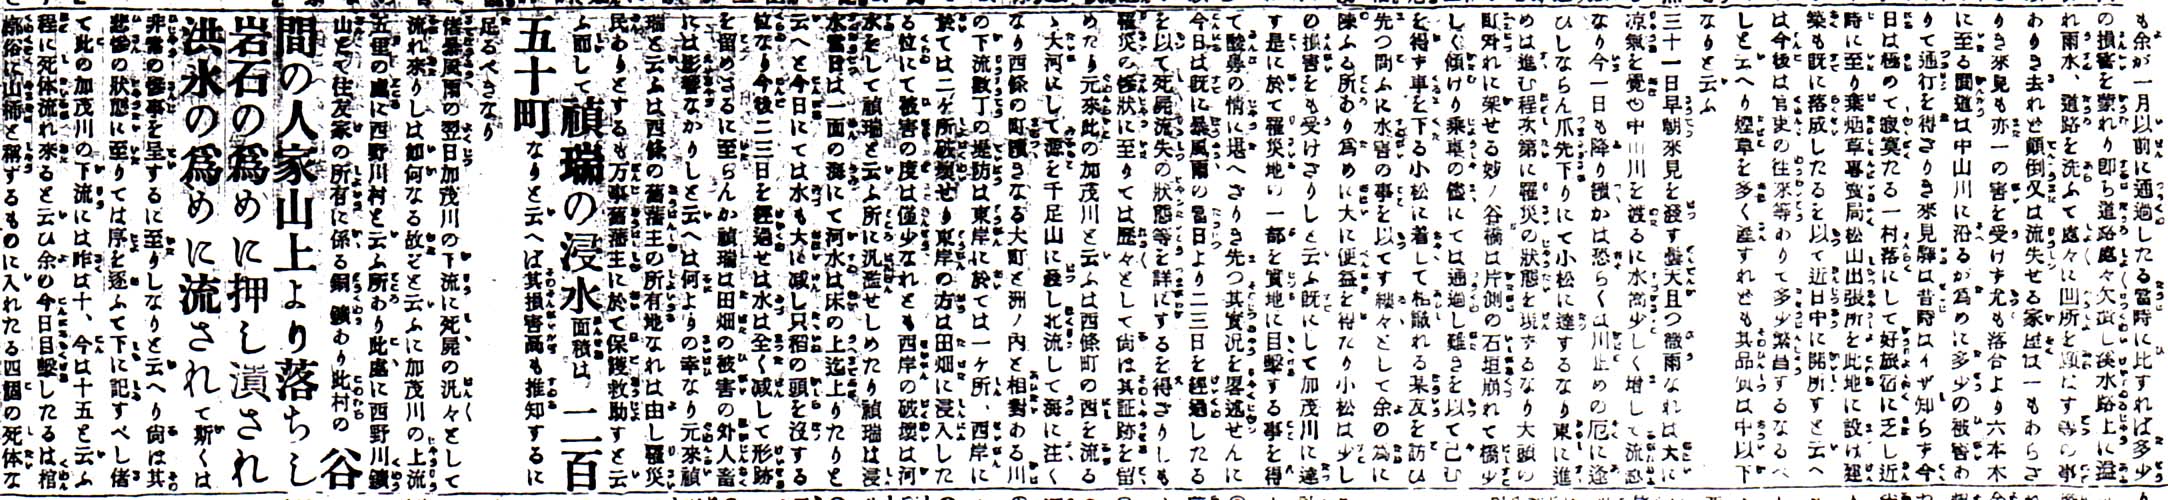 も余が一月以前に通過したる當時に比すれば多少
の損害を蒙れり即ち道路處々欠潰し溪水路上に溢
れ雨水、道路を洗ふて處々に凹所を
ありき去れど顚倒又は流失せる家屋は一もわらさ
りき來見も亦一の害を受けす尤も落合より六本木
に至る間道は中山川に沿るが爲めに多少の被害わ
りて通行を得さりき來見驛は昔時はイザ知らす今
日は極めて寂寞たる一村落にして好旅宿に乏し近
時に至り葉烟草專賣局松山出張所を此地に設け建
築も既に落成したるを以て近日中に開所すと云へ
は今後は官吏の往來等わりて多少繁昌するなるへ
しと云へり烟草を多く産すれども其品質は中以下
なりと云ふ
三十一日早朝來見を發す曇天且つ微雨なれは大に
涼氣を覺ゆ中山川を渡るに水嵩少しく增して流急
なり今一日も降り續かは恐らくは川止めの厄に逢
ひしならん爪先下りにて小松に達するなり東に進
めは進む程次第に罹災の狀態を現するなり大頭の
町外れに架せる妙ノ谷橋は片側の石垣崩れて橋少
しく傾けり乘車の儘にては通過し難きを以て已む
を得す車を下る小松に着して相識れる某友を訪ひ
先つ問ふに水害の事を以てす縷々として余の爲に
陳ふる所あり爲めに大に便益を得たり小松は少し
の損害をも受けさりしと云ふ既にして加茂川に達
す是に於て罹災地の一部を實地に目擊する事を得
て酸鼻の情に堪へさりき先つ其實況を畧述せんに
今日は既に暴風雨の當日より二三日を經過したる
を以て死屍流失の狀態等を詳にするを得さりしも
罹災の慘狀に至りては歷々として尚は其証跡を留
めたり元來此の加茂川と云ふは西條町の西を流る
ゝ大河にして源を千足山に發し北流して海に注く
なり西條の町續きなる大町と洲ノ内と相對わる川
の下流數丁の堤防は東岸に於ては一ヶ所、西岸に
於ては二ヶ所破壞せり東岸の方は田畑に浸入した
る位にて被害の度は僅少なれども西岸の破壞は河
水をして禎瑞と云ふ所に汎濫せしめたり禎瑞は浸
水當日は一面の海にて河水は床の上迄上りたりと
云へと今日にては水も大に減し只稻の頭を沒する
位なり今後二三日を經過せは水は全く減して形跡
を留めさるに至らんか禎瑞は田畑の被害の外人畜
には影響なかりしと云へは何よりの幸なり元來禎
瑞と云ふは西條の舊藩主の所有地なれは由し罹災
民ありとするも万事舊藩主に於て保護救助すと云
ふ而して禎瑞の浸水面積は二百
五十町なりと云へば其損害高も推知するに
足るべきなり
偖暴風雨の翌日加茂川の下流に死屍の汎々として
流れ來りしは如何なる故ぞと云ふに加茂川の上流
五里の處に西野川村と云ふ所あり此處に西野川鑛
山とて住友家の所有に係る銅鑛あり此村の谷
間の人家山上より落ちし
岩石の爲めに押し潰され
洪水の爲めに流されて斯くは
非常の慘事を呈するに至りしなりと云へり尚は其
悲慘の狀態に至りては序を逐ふて下に記すべし偖
て此の加茂川の下流には昨は十、今は十五と云ふ
程に死体流れ來ると云ひ余の今日目擊したるは棺
郷俗に山桶と稱するものに入れたる四個の死体な